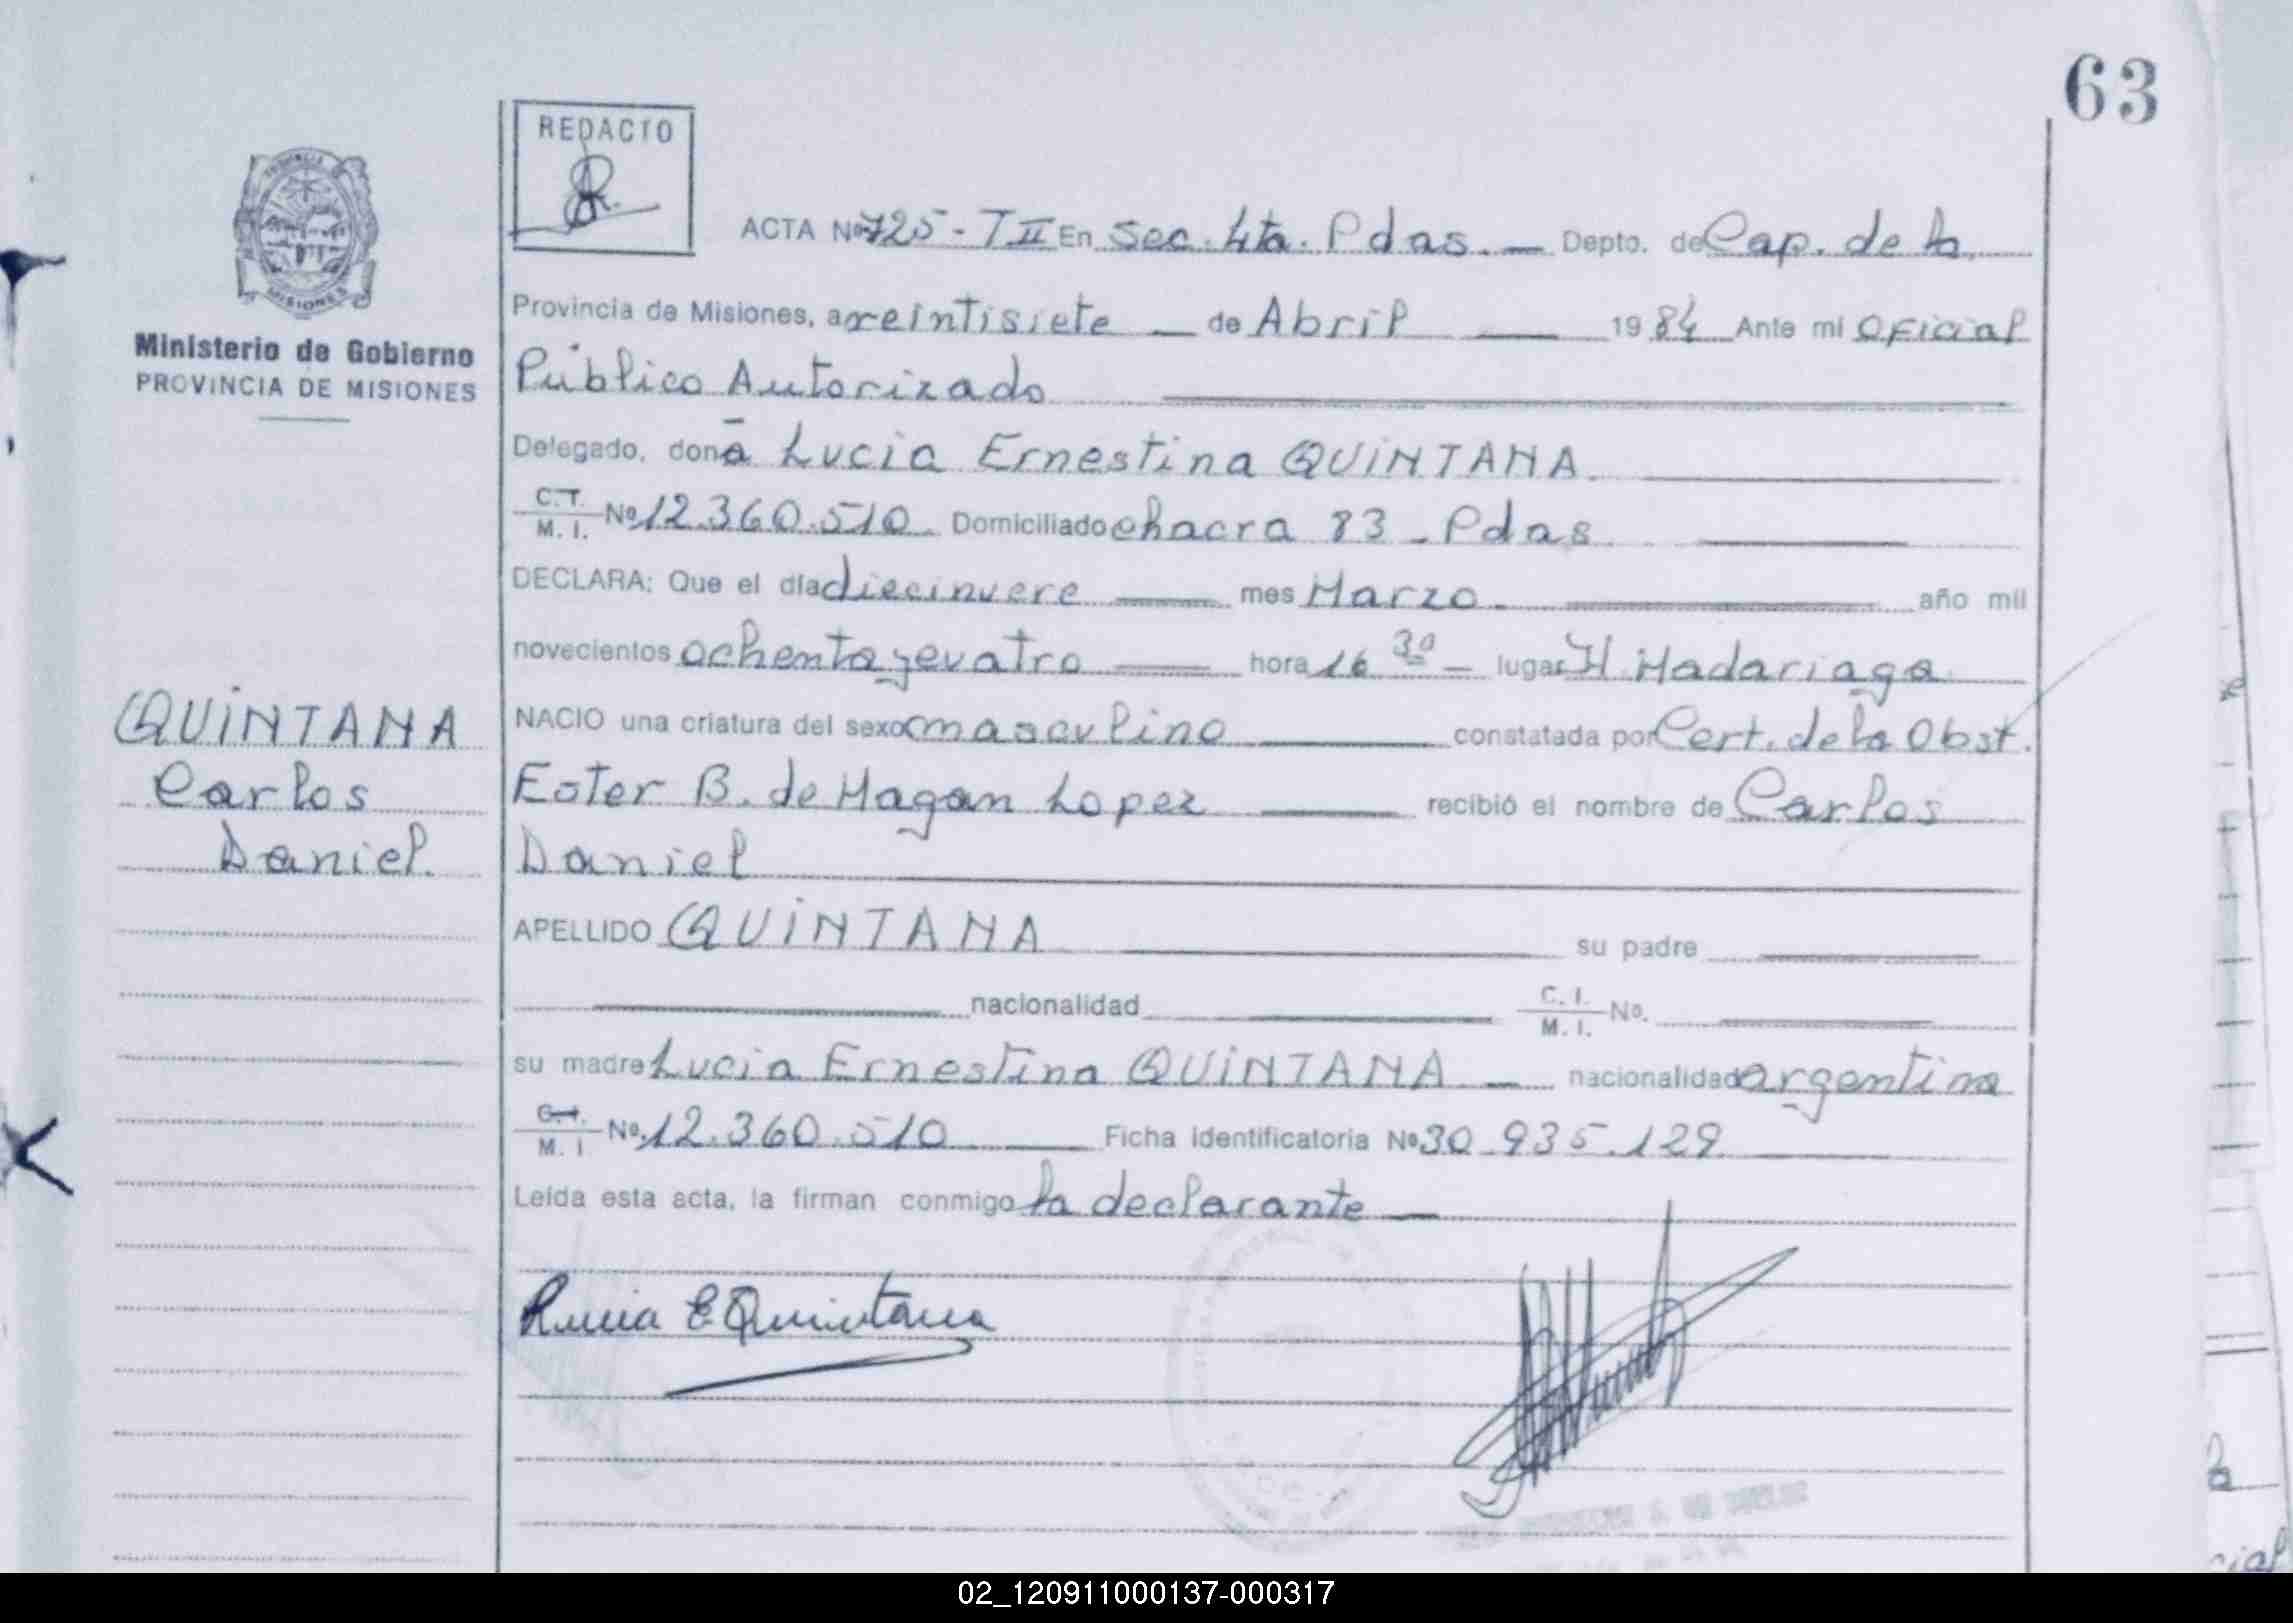 63
REDACTO
PROVINCIA
MISIONES
Ministerio de Gobierno
PROVINCIA DE MISIONES
ACTA Nº 725 - T II En Sec. 4ta. Pdas. — Depto. de Cap. de la
Provincia de Misiones, a veintisiete — de Abril — 19 84 Ante mi Oficial
Público Autorizado
Delegado, doña Lucia Ernestina QUINTANA.
C. I. M. I. Nº 12.360.510. Domiciliado chacra 83 - Pdas
DECLARA: Que el día diecinueve — mes Marzo. — año mil
novecientos ochenta y cuatro — hora 16 30 — lugar H. Madariaga
NACIO una criatura del sexo masculino — constatada por Cert. de la Obst.
Ester B. de Magan Lopez — recibió el nombre de Carlos
Daniel
APELLIDO QUINTANA — su padre —
— nacionalidad — C. I. M. I. Nº. —
su madre Lucia Ernestina QUINTANA — nacionalidad argentina
C. I. M. I Nº. 12.360.510 — Ficha identificatoria Nº 30.935.129
Leída esta acta, la firman conmigo la declarante —
QUINTANA
Carlos
Daniel.
Lucia E Quintana
02_120911000137-000317